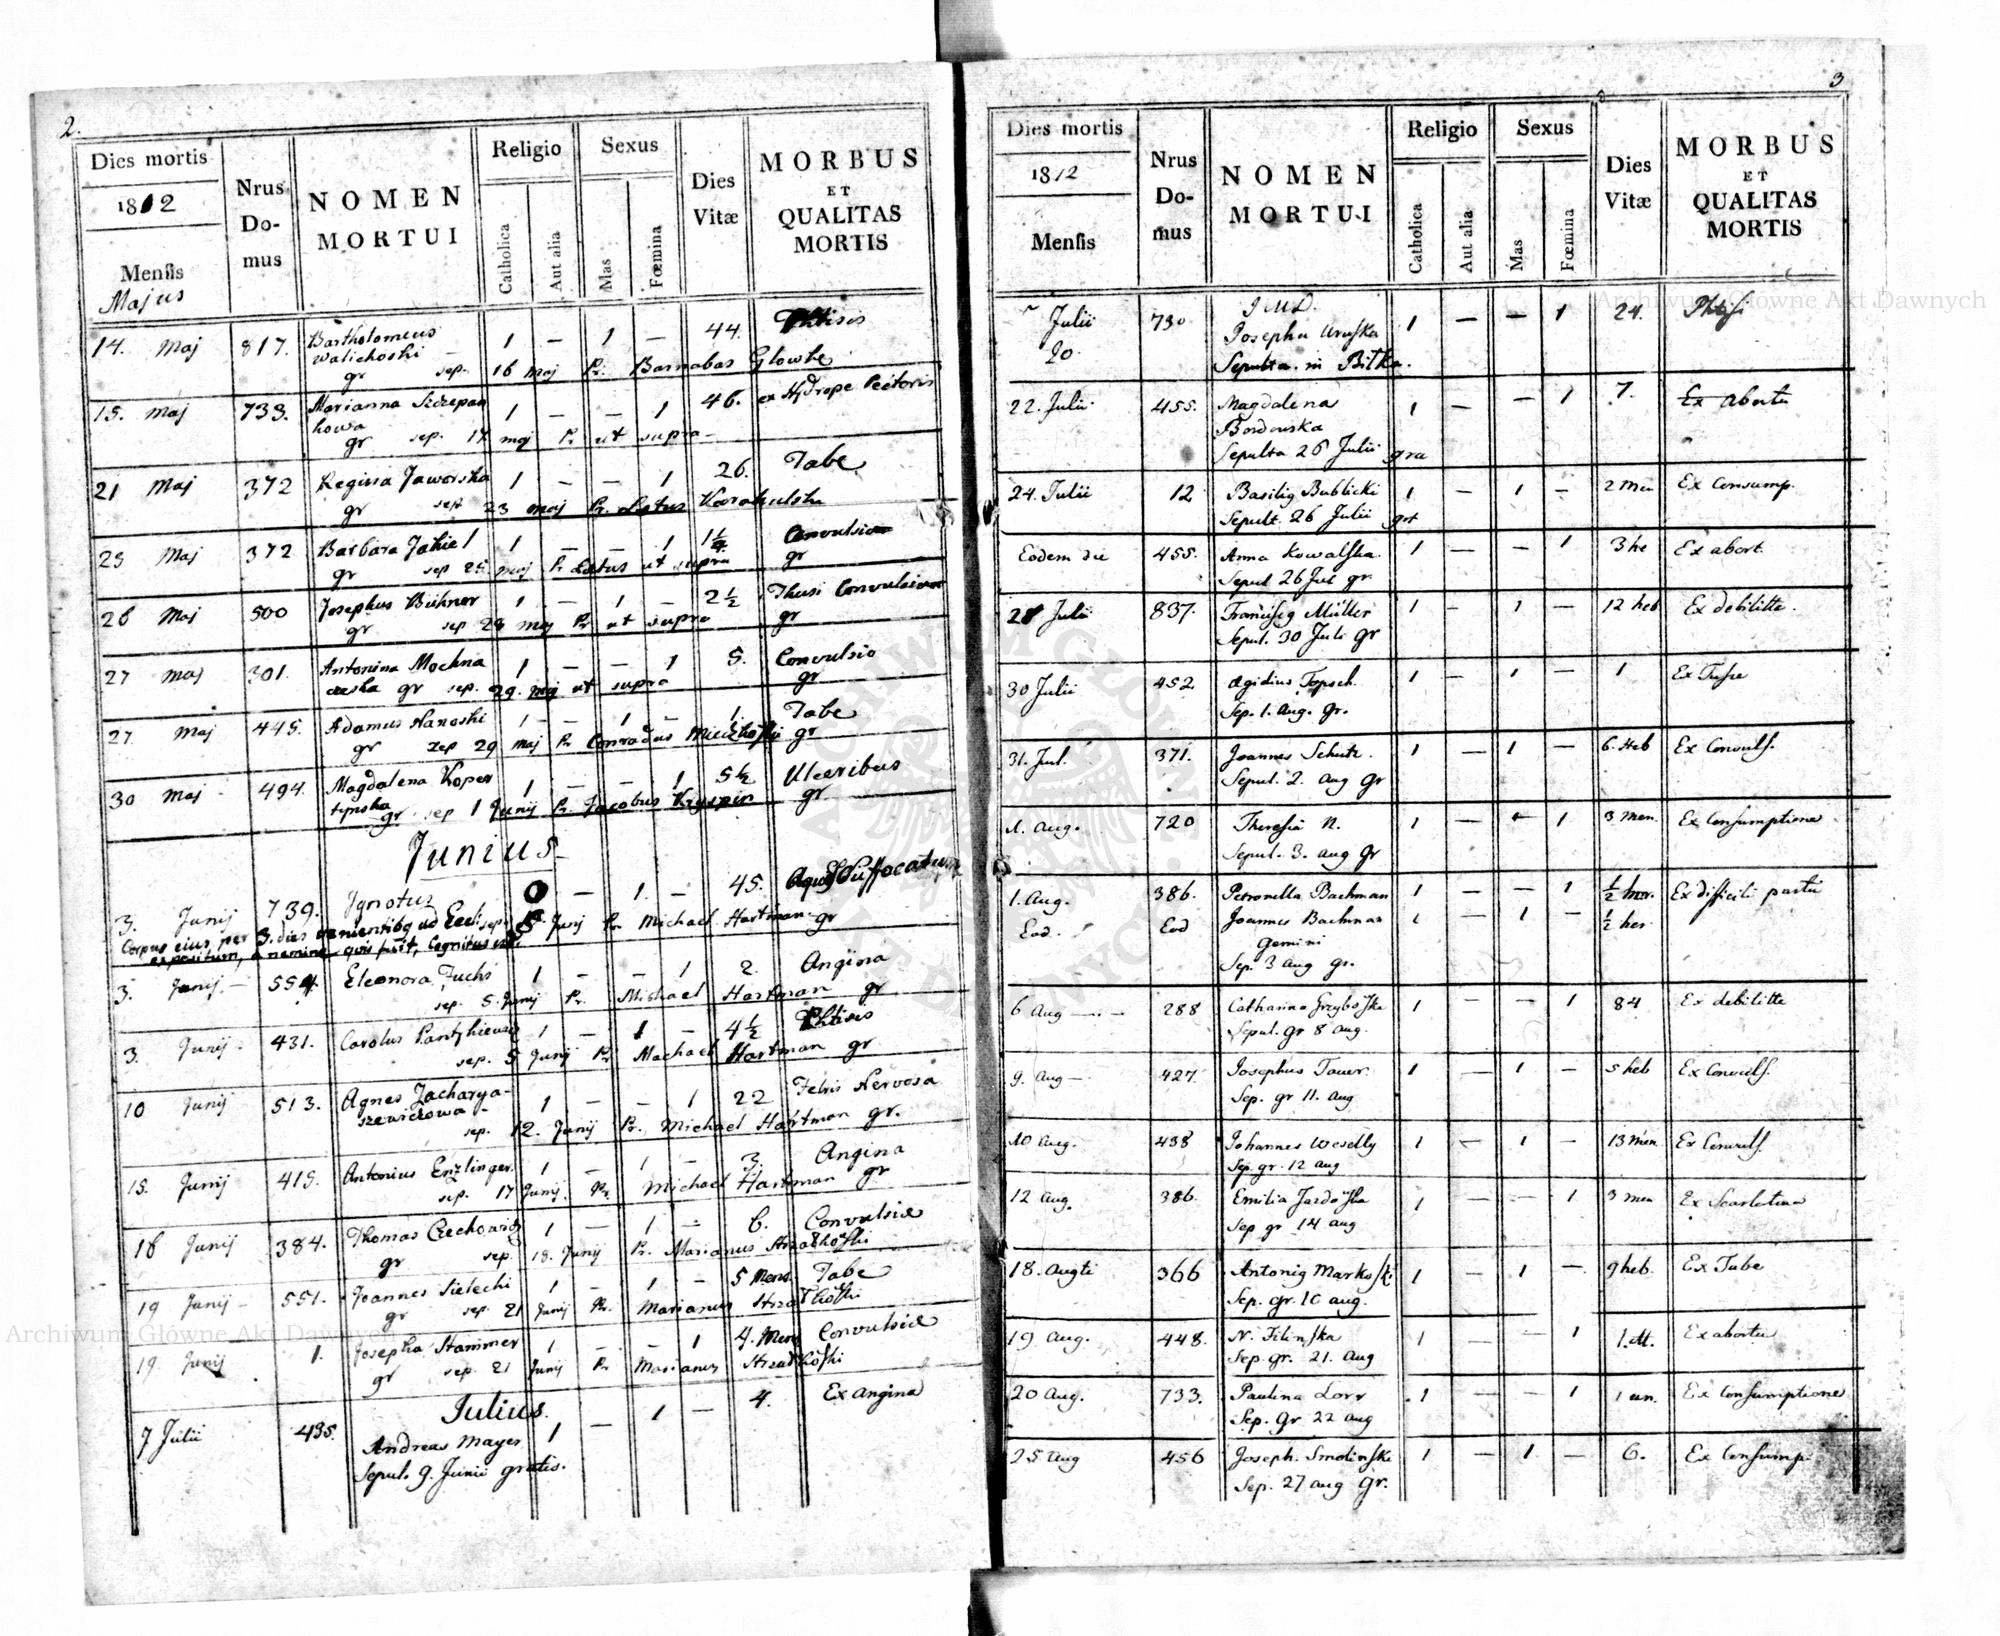 2.
Dies mortis
1812
Menſis
Majus
Nrus Do-mus
NOMEN MORTUI
Religio
Catholica
Aut alia
Sexus
Mas
Fœmina
Dies Vitæ
MORBUS ET QUALITAS MORTIS
14. Maj 817. Bartholomeus 1 — 1 — 44. Phtisis
Walichoski
gr sep. 16 maj Pr. Barnabas Glowke
15. Maj 733. Marianna Szczepan 1 — — 1 46. ex Hydrope Pectoris
kowa
gr sep. 17 maj Pr ut supra
21 Maj 372 Regina Jaworska 1 — — 1 26. Tabe
gr sep 23 maj Pr. Letus
23 Maj 372 Barbara 1 — — 1 1¼ Convulsion
gr sep 25 maj Pr Letus ut supra gr
26 Maj 500 Josephus Bühner 1 — 1 — 2½ Thusi Convulsion
gr sep 28 maj Pr ut supra gr
27 Maj 301. Antonina Mochna 1 — — 1 5. Convulsio
czeska gr sep. 29. maj ut supra gr
27 Maj 445. Adamus Hanaski 1 — 1 — 1 Tabe
gr sep 29 maj Pr Conradus gr
30 Maj 494. Magdalena Koper 1 — — 1 5½ Ulceribus
tynska gr sep 1 Junij Pr. Jacobus Kryspin gr
Junius
3. Junij 739. Ignotus 0 — 1. — 45. Aquis Suffocatum
Corpus eius, per 3. dies venientibq ad Eccl: sep. 5. Junij Pr. Michael Hartman gr
expositum, a nemine quis fuit, Cognitus est.
3. Junij 554. Eleonora Fuchs 1 — — 1 2. Angina
sep. 5. Junij Pr. Michael Hartman gr
3. Junij 431. Carolus 1 — 1 — 4½ Phtisis
sep. 5 Junij Pr Machael Hartman gr
10 Junij 513. Agnes Zacharya- 1 — — 1 22 Febris Nervosa
szewiczowa
sep. 12. Junij Pr. Michael Hartman gr.
15. Junij 415. Antonius Enzlinger 1 — 1 — 3. Angina
sep. 17 Junij. Pr. Michael Hartman gr
16 Junij 384. Thomas Czechowicz 1 — 1 — 6. Convulsie
gr sep. 18. Junij Pr. Marianus
19 Junij 551. Joannes Sielecki 1 — 1 — 5 Mens. Tabe
gr sep. 21 Junij Pr. Marianus
19 Junij 1. Josepha Stammer 1 — — 1 4. Mens Convulsie
gr sep. 21 Junij Pr Marianus
Julius.
7 Julii 435. Andreas Mayer 1 — 1 — 4. Ex angina
Sepul. 9. Junii gratis.
3
Dies mortis
1812
Menſis
Nrus Do-mus
NOMEN MORTUI
Religio
Catholica
Aut alia
Sexus
Mas
Fœmina
Dies Vitæ
MORBUS ET QUALITAS MORTIS
Julii 730 J.M.D. 1 — — 1 24.
20. Josepha
Sepulta in Bilka.
22. Julii 455. Magdalena 1 — — 1 7. Ex abortu
Bordowska
Sepulta 26 Julii gra
24. Julii 12 Basiliq Bublicki 1 — 1 — 2 Men Ex Consump.
Sepult. 26 Julii grt
Eodem die 455. Anna Kowalſka 1 — — 1 3 he Ex abort.
Sepul 26 Jul gr.
28 Julii 837. Franciſcq Müller 1 — 1 — 12 heb Ex debilitte.
Sepul. 30 Juli gr
30 Julii 452. Ægidius Topsch. 1 — 1 — 1 Ex Tuſse
Sep. 1. Aug. gr.
31. Jul. 371. Joannes Schutz. 1 — 1 — 6. Heb Ex Convulſ.
Sepul. 2. Aug gr
1. Aug. 720 Theresia N. 1 — — 1 3 Men. Ex Conſumptione
Sepul. 3. Aug gr
1. Aug. 386. Petronella Bachman 1 — — 1 ½ hor. Ex difficili partu
Eod. Eod Joannes Bachman 1 — 1 — ½ hor
Gemini
Sep. 3 Aug gr.
6 Aug 288 Catharina Grzyboſka 1 — — 1 84 Ex debilitte
Sepul. gr 8 Aug.
9. Aug 427. Josephus Tauer 1 — 1 — 5 heb Ex Convulſ.
Sep. gr 11. Aug
10 Aug. 438 Johannes Weselly 1 — 1 — 13 Men Ex Convulſ.
Sep. gr. 12 Aug
12 Aug. 386. Emilia 1 — — 1 3 men Ex Scarlatina
Sep gr 14 Aug
18. Augti 366 Antoniq Markoſki 1 — 1 — 9 heb. Ex Tabe
Sep. gr. 20 Aug.
19. Aug. 448. N. Filinſka 1 — — 1 1. M. Ex abortu
Sep. gr. 21. Aug
20 Aug. 733. Paulina Lorr 1 — — 1 1 an. Ex Conſumptione
Sep. gr 22 Aug
25 Aug 456 Joseph. Smolinſki 1 — 1 — 6. Ex Conſump.
Sep. 27 Aug gr.
Archiwum Główne Akt Dawnych
Archiwum Główne Akt Dawnych